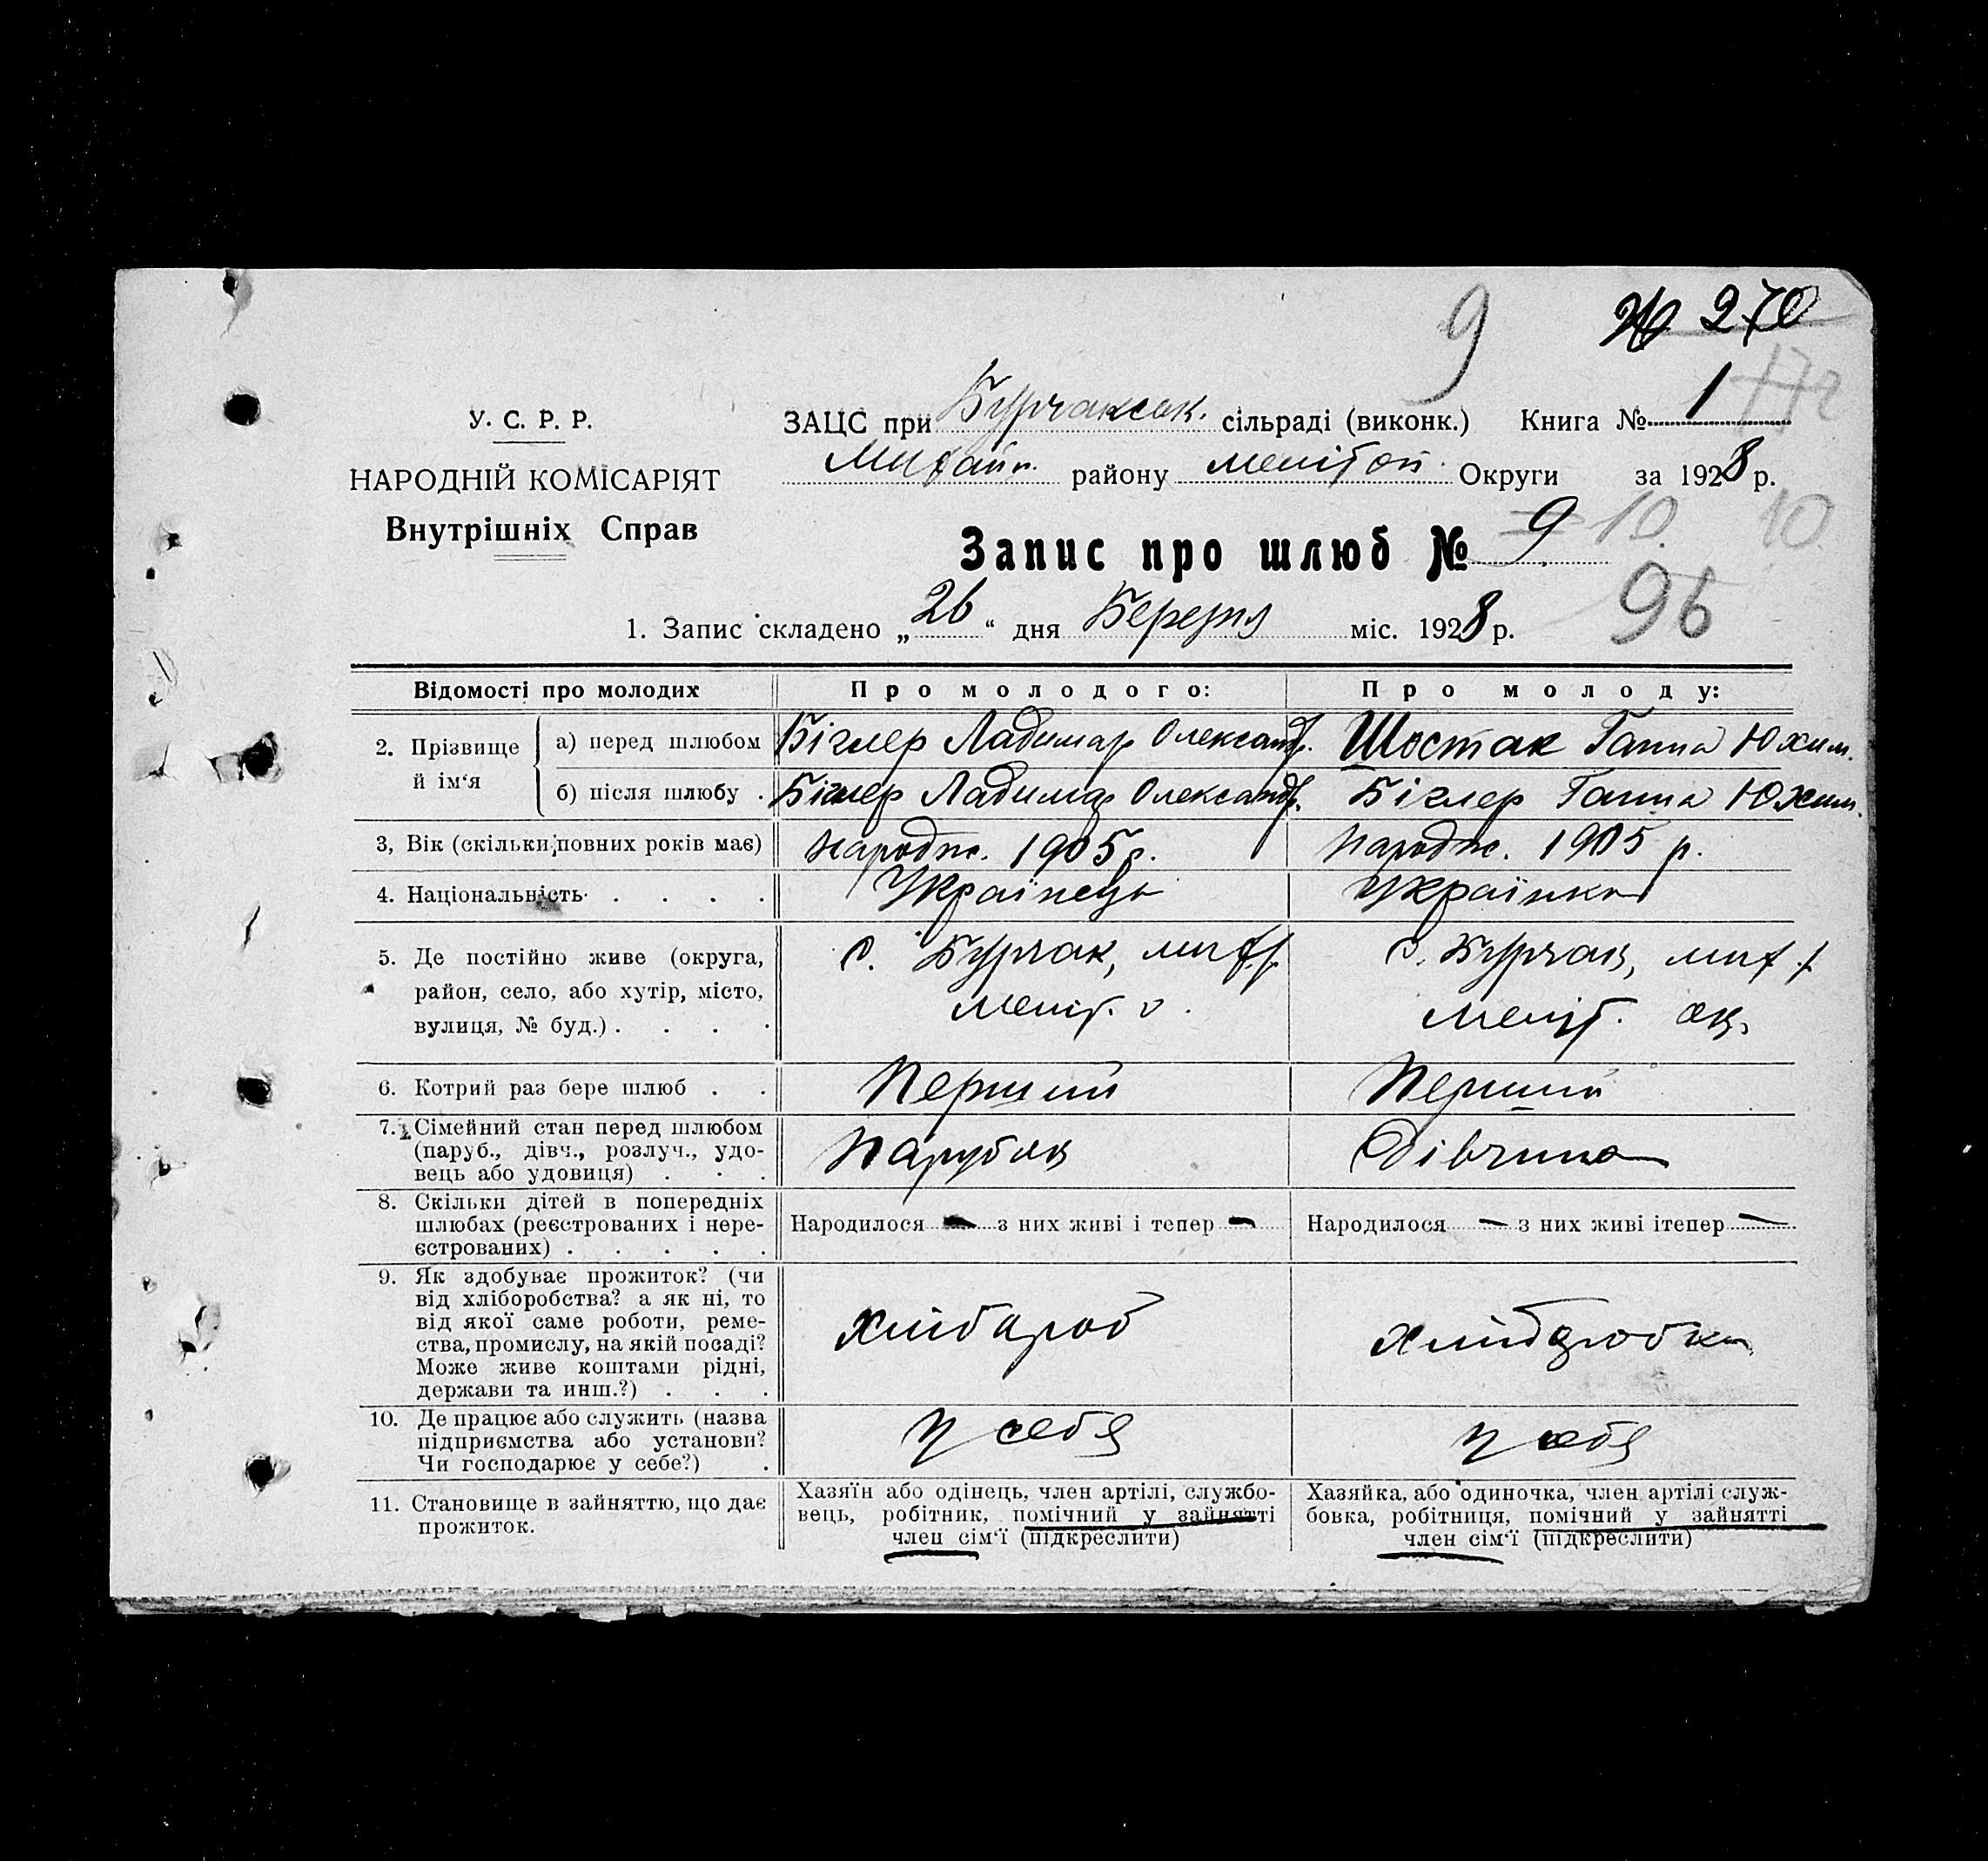 9 № 270
172
У. С. Р. Р.
НАРОДНІЙ КОМІСАРІЯТ
Внутрішніх Справ
ЗАЦС при Бурчакськ. сільраді (виконк.) Книга № 1
Михайл. району Меліт. Округи за 1928 р.
Запис про шлюб № 9. 10. 10.
96
1. Запис складено „26“ дня Березня міс. 1928 р.
Відомості про молодих Про молодого: Про молоду:
2. Прізвище й ім‘я
а) перед шлюбом Біглер Ладимар Олександр. Шостак Ганна Юхим.
б) після шлюбу . Біглер Ладимар Олександр. Біглер Ганна Юхим.
3, Вік (скільки повних років має) народж. 1905 р. народж. 1905 р.
4. Національність . . . . Українець Українка
5. Де постійно живе (округа,
район, село, або хутір, місто,
вулиця, № буд.) . . . .
с. Бурчак, мих. р. с. Бурчак, мих. р.
меліт. о. меліт. ок.
6. Котрий раз бере шлюб . . Перший Перший
7. Сімейний стан перед шлюбом
(паруб., дівч., розлуч., удо-
вець або удовиця) . . .
Парубяк Дівчина
8. Скільки дітей в попередніх
шлюбах (реєстрованих і нере-
єстрованих) . . . . .
Народилося — з них живі і тепер — Народилося — з них живі ітепер —
9. Як здобуває прожиток? (чи
від хліборобства? а як ні, то
від якої саме роботи, реме-
ства, промислу, на якій посаді?
Може живе коштами рідні,
держави та инш.?) . . .
хлібароб хлібаробка
10. Де працює або служить (назва
підприємства або установи?
Чи господарює у себе?) .
у себя у себя
11. Становище в зайняттю, що дає
прожиток.
Хазяїн або одінець, член артілі, службо-
вець, робітник, помічний у зайнятті
член сім‘ї (підкреслити)
Хазяйка, або одиночка, член артілі служ-
бовка, робітниця, помічний у зайнятті
член сім‘ї (підкреслити)